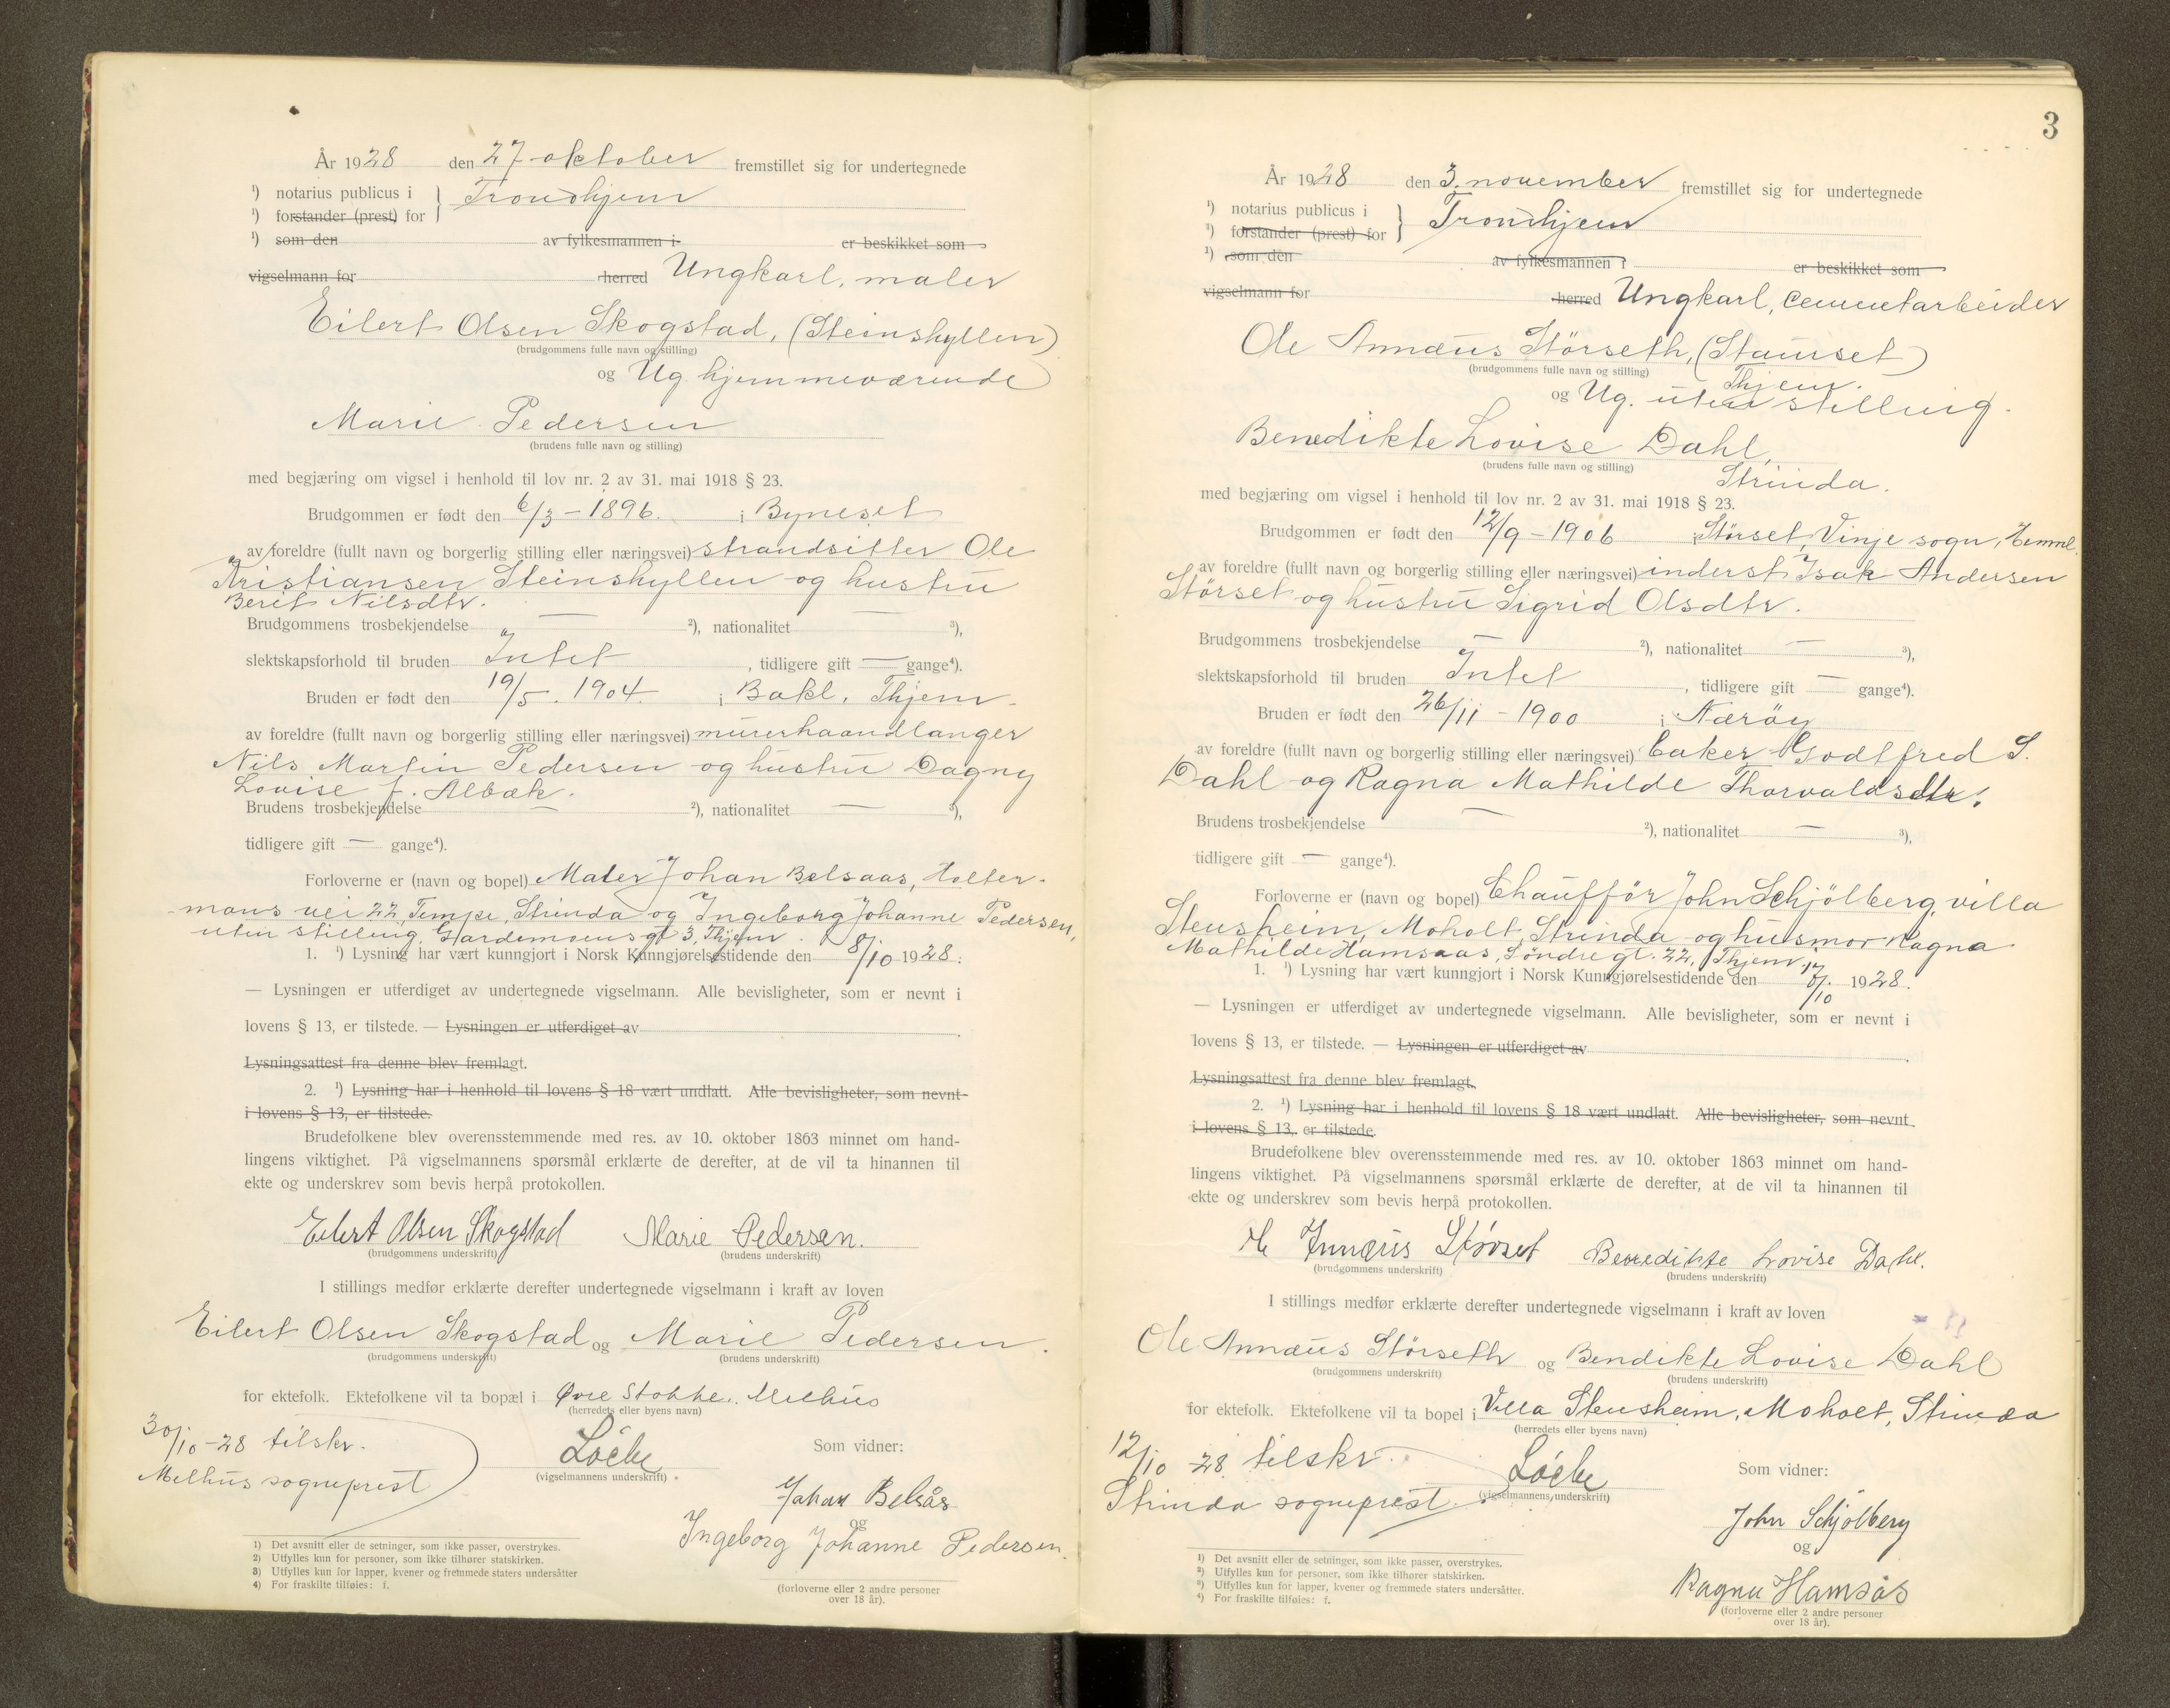 År 1928 den 27 oktober fremstillet sig for undertegnede
¹) notarius publicus i } Trondhjem
¹) forstander (prest) for
¹) som den av fylkesmannen i er beskikket som
vigselmann for herred Ungkarl, maler
Eilert Olsen Skogstad, (Steinshyllen)
(brudgommens fulle navn og stilling)
og Ug hjemmeværende
Marie Pedersen
(brudens fulle navn og stilling)
med begjæring om vigsel i henhold til lov nr. 2 av 31. mai 1918 § 23.
Brudgommen er født den 6/3 - 1896. i Byneset
av foreldre (fullt navn og borgerlig stilling eller næringsvei) strandsitter Ole
Kristiansen Steinshyllen og hustru
Berit Nilsdtr.
Brudgommens trosbekjendelse — ²), nationalitet ³),
slektskapsforhold til bruden Intet, tidligere gift — gange⁴).
Bruden er født den 19/5. 1904. i Bakl. Thjem.
av foreldre (fullt navn og borgerlig stilling eller næringsvei) murerhaandlanger
Nils Martin Pedersen og hustru Dagny
Louise f. Albæk.
Brudens trosbekjendelse — ²), nationalitet — ³),
tidligere gift — gange⁴).
Forloverne er (navn og bopel) Maler Johan Belsaas, Holter-
mans vei 22, Tempe, Strinda og Ingeborg Johanne Pedersen,
uten stilling, Gardemoens gt 3, Thjem.
1. ¹) Lysning har vært kunngjort i Norsk Kunngjørelsestidende den 8/10 1928.
— Lysningen er utferdiget av undertegnede vigselmann. Alle bevisligheter, som er nevnt i
lovens § 13, er tilstede. — Lysningen er utferdiget av
Lysningsattest fra denne blev fremlagt.
2. ¹) Lysning har i henhold til lovens § 18 vært undlatt. Alle bevisligheter, som nevnt
i lovens § 13, er tilstede.
Brudefolkene blev overensstemmende med res. av 10. oktober 1863 minnet om hand-
lingens viktighet. På vigselmannens spørsmål erklærte de derefter, at de vil ta hinannen til
ekte og underskrev som bevis herpå protokollen.
Eilert Olsen Skogstad Marie Pedersen.
(brudgommens underskrift) (brudens underskrift)
I stillings medfør erklærte derefter undertegnede vigselmann i kraft av loven
Eilert Olsen Skogstad og Marie Pedersen.
(brudgommens underskrift) (brudens underskrift)
for ektefolk. Ektefolkene vil ta bopæl i Øvre Stokke, Melhus
(herredets eller byens navn)
30/10-28 tilskr.
Melhus sogneprest
Löcke
(vigselmannens underskrift)
Som vidner:
Johan Belsås
og
Ingeborg Johanne Pedersen.
(forloverne eller 2 andre personer
over 18 år).
1) Det avsnitt eller de setninger, som ikke passer, overstrykes.
2) Utfylles kun for personer, som ikke tilhører statskirken.
3) Utfylles kun for lapper, kvener og fremmede staters undersåtter
4) For fraskilte tilføies: f.
3
År 1928 den 3. november fremstillet sig for undertegnede
¹) notarius publicus i } Trondhjem
¹) forstander (prest) for
¹) som den av fylkesmannen i er beskikket som
vigselmann for herred Ungkarl, cementarbeider
Ole Annæus Störseth, (Stamset)
(brudgommens fulle navn og stilling)
Thjem.
og Ug. uten stilling.
Benedikte Lovise Dahl,
(brudens fulle navn og stilling)
Strinda.
med begjæring om vigsel i henhold til lov nr. 2 av 31. mai 1918 § 23.
Brudgommen er født den 12/9 - 1906 i Störset, Vinje sogn, Hemne.
av foreldre (fullt navn og borgerlig stilling eller næringsvei) inderst Isak Andersen
Störset og hustru Sigrid Olsdtr.
Brudgommens trosbekjendelse — ²), nationalitet — ³),
slektskapsforhold til bruden Intet, tidligere gift — gange⁴).
Bruden er født den 26/11 - 1900 i Nærøy
av foreldre (fullt navn og borgerlig stilling eller næringsvei) baker Godtfred S.
Dahl og Ragna Mathilde Thorvaldsdtr.
Brudens trosbekjendelse — ²), nationalitet — ³),
tidligere gift — gange⁴).
Forloverne er (navn og bopel) Chaufför John Schjölberg, villa
Stensheim, Moholt, Strinda og husmor Ragna
Mathilde Hamsaas, Söndre gt. 22, Thjem.
1. ¹) Lysning har vært kunngjort i Norsk Kunngjørelsestidende den 17/10 1928.
— Lysningen er utferdiget av undertegnede vigselmann. Alle bevisligheter, som er nevnt i
lovens § 13, er tilstede. — Lysningen er utferdiget av
Lysningsattest fra denne blev fremlagt.
2. ¹) Lysning har i henhold til lovens § 18 vært undlatt. Alle bevisligheter, som nevnt
i lovens § 13, er tilstede.
Brudefolkene blev overensstemmende med res. av 10. oktober 1863 minnet om hand-
lingens viktighet. På vigselmannens spørsmål erklærte de derefter, at de vil ta hinannen til
ekte og underskrev som bevis herpå protokollen.
Ole Annæus Störset Benedikte Lovise Dahl.
(brudgommens underskrift) (brudens underskrift)
I stillings medfør erklærte derefter undertegnede vigselmann i kraft av loven
Ole Annæus Störseth og Bendikte Lovise Dahl
(brudgommens underskrift) (brudens underskrift)
for ektefolk. Ektefolkene vil ta bopel i Villa Stensheim, Moholt, Strinda
(herredets eller byens navn)
12/10 28 tilskr.
Strinda sogneprest.
Löcke
(vigselmannens underskrift)
Som vidner:
John Schjölberg
og
Ragna Hamsås
(forloverne eller 2 andre personer
over 18 år).
¹) Det avsnitt eller de setninger, som ikke passer, overstrykes.
²) Utfylles kun for personer, som ikke tilhører statskirken.
³) Utfylles kun for lapper, kvener og fremmede staters undersåtter.
⁴) For fraskilte tilføies: f.